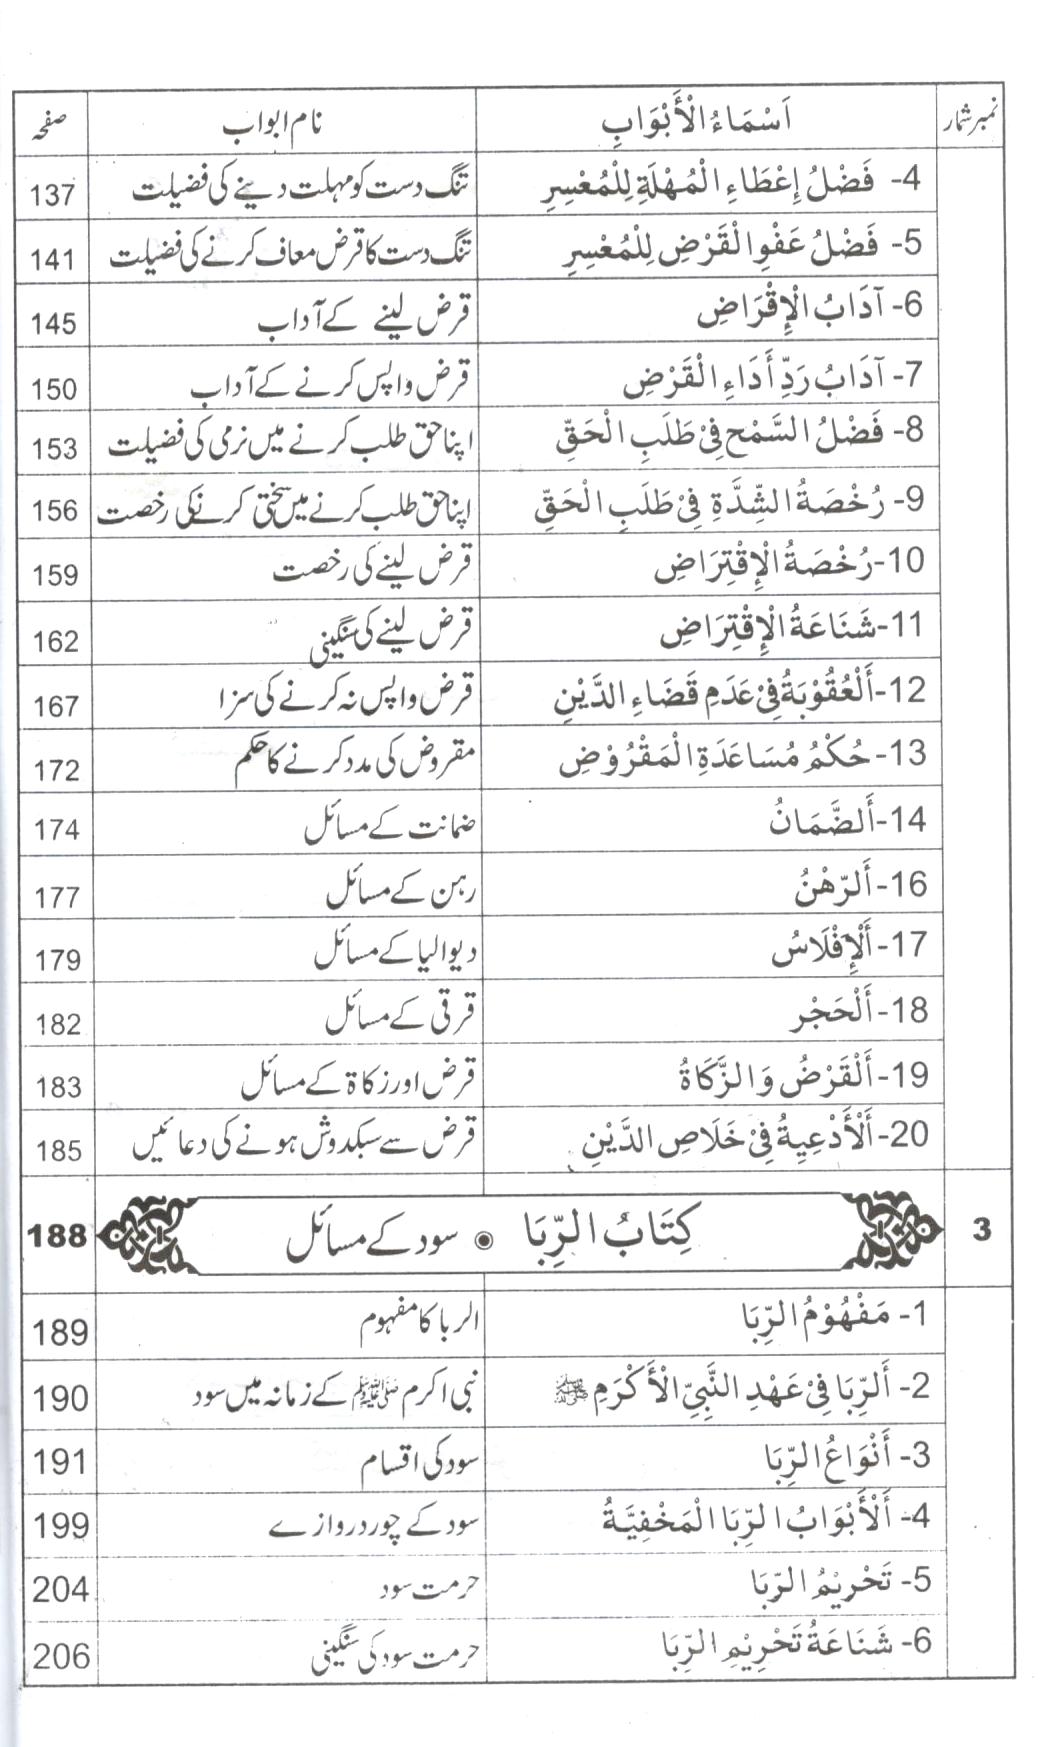 نمبر شمار اَسْمَاءُ الْأَبْوَابِ نام ابواب صفحہ
4- فَضْلُ إِعْطَاءِ الْمُهْلَةِ لِلْمُعْسِرِ تنگ دست کو مہلت دینے کی فضیلت 137
5- فَضْلُ عَفْوِ الْقَرْضِ لِلْمُعْسِرِ تنگ دست کا قرض معاف کرنے کی فضیلت 141
6- آدَابُ الْإِقْرَاضِ قرض لینے کے آداب 145
7- آدَابُ رَدِّ أَدَاءِ الْقَرْضِ قرض واپس کرنے کے آداب 150
8- فَضْلُ السَّمْحِ فِيْ طَلَبِ الْحَقِّ اپنا حق طلب کرنے میں نرمی کی فضیلت 153
9- رُخْصَةُ الشِّدَّةِ فِيْ طَلَبِ الْحَقِّ اپنا حق طلب کرنے میں سختی کرنے کی رخصت 156
10- رُخْصَةُ الْإِقْتِرَاضِ قرض لینے کی رخصت 159
11- شَنَاعَةُ الْإِقْتِرَاضِ قرض لینے کی سنگینی 162
12- أَلْعُقُوْبَةُ فِيْ عَدَمِ قَضَاءِ الدَّيْنِ قرض واپس نہ کرنے کی سزا 167
13- حُكْمُ مُسَاعَدَةِ الْمَقْرُوْضِ مقروض کی مدد کرنے کا حکم 172
14- أَلضَّمَانُ ضمانت کے مسائل 174
16- أَلرَّهْنُ رہن کے مسائل 177
17- أَلْإِفْلَاسُ دیوالیا کے مسائل 179
18- أَلْحَجْر قرقی کے مسائل 182
19- أَلْقَرْضُ وَالزَّكَاةُ قرض اور زکاۃ کے مسائل 183
20- أَلْأَدْعِيةُ فِيْ خَلَاصِ الدَّيْنِ قرض سے سبکدوش ہونے کی دعائیں 185
3 كِتَابُ الرِّبَا ● سود کے مسائل 188
1- مَفْهُوْمُ الرِّبَا الربا کا مفہوم 189
2- أَلرِّبَا فِيْ عَهْدِ النَّبِيِّ الْأَكْرَمِ ﷺ نبی اکرم ﷺ کے زمانہ میں سود 190
3- أَنْوَاعُ الرِّبَا سود کی اقسام 191
4- أَلْأَبْوَابُ الرِّبَا الْمَخْفِيَّةُ سود کے چور دروازے 199
5- تَحْرِيْمُ الرِّبَا حرمت سود 204
6- شَنَاعَةُ تَحْرِيْمِ الرِّبَا حرمت سود کی سنگینی 206